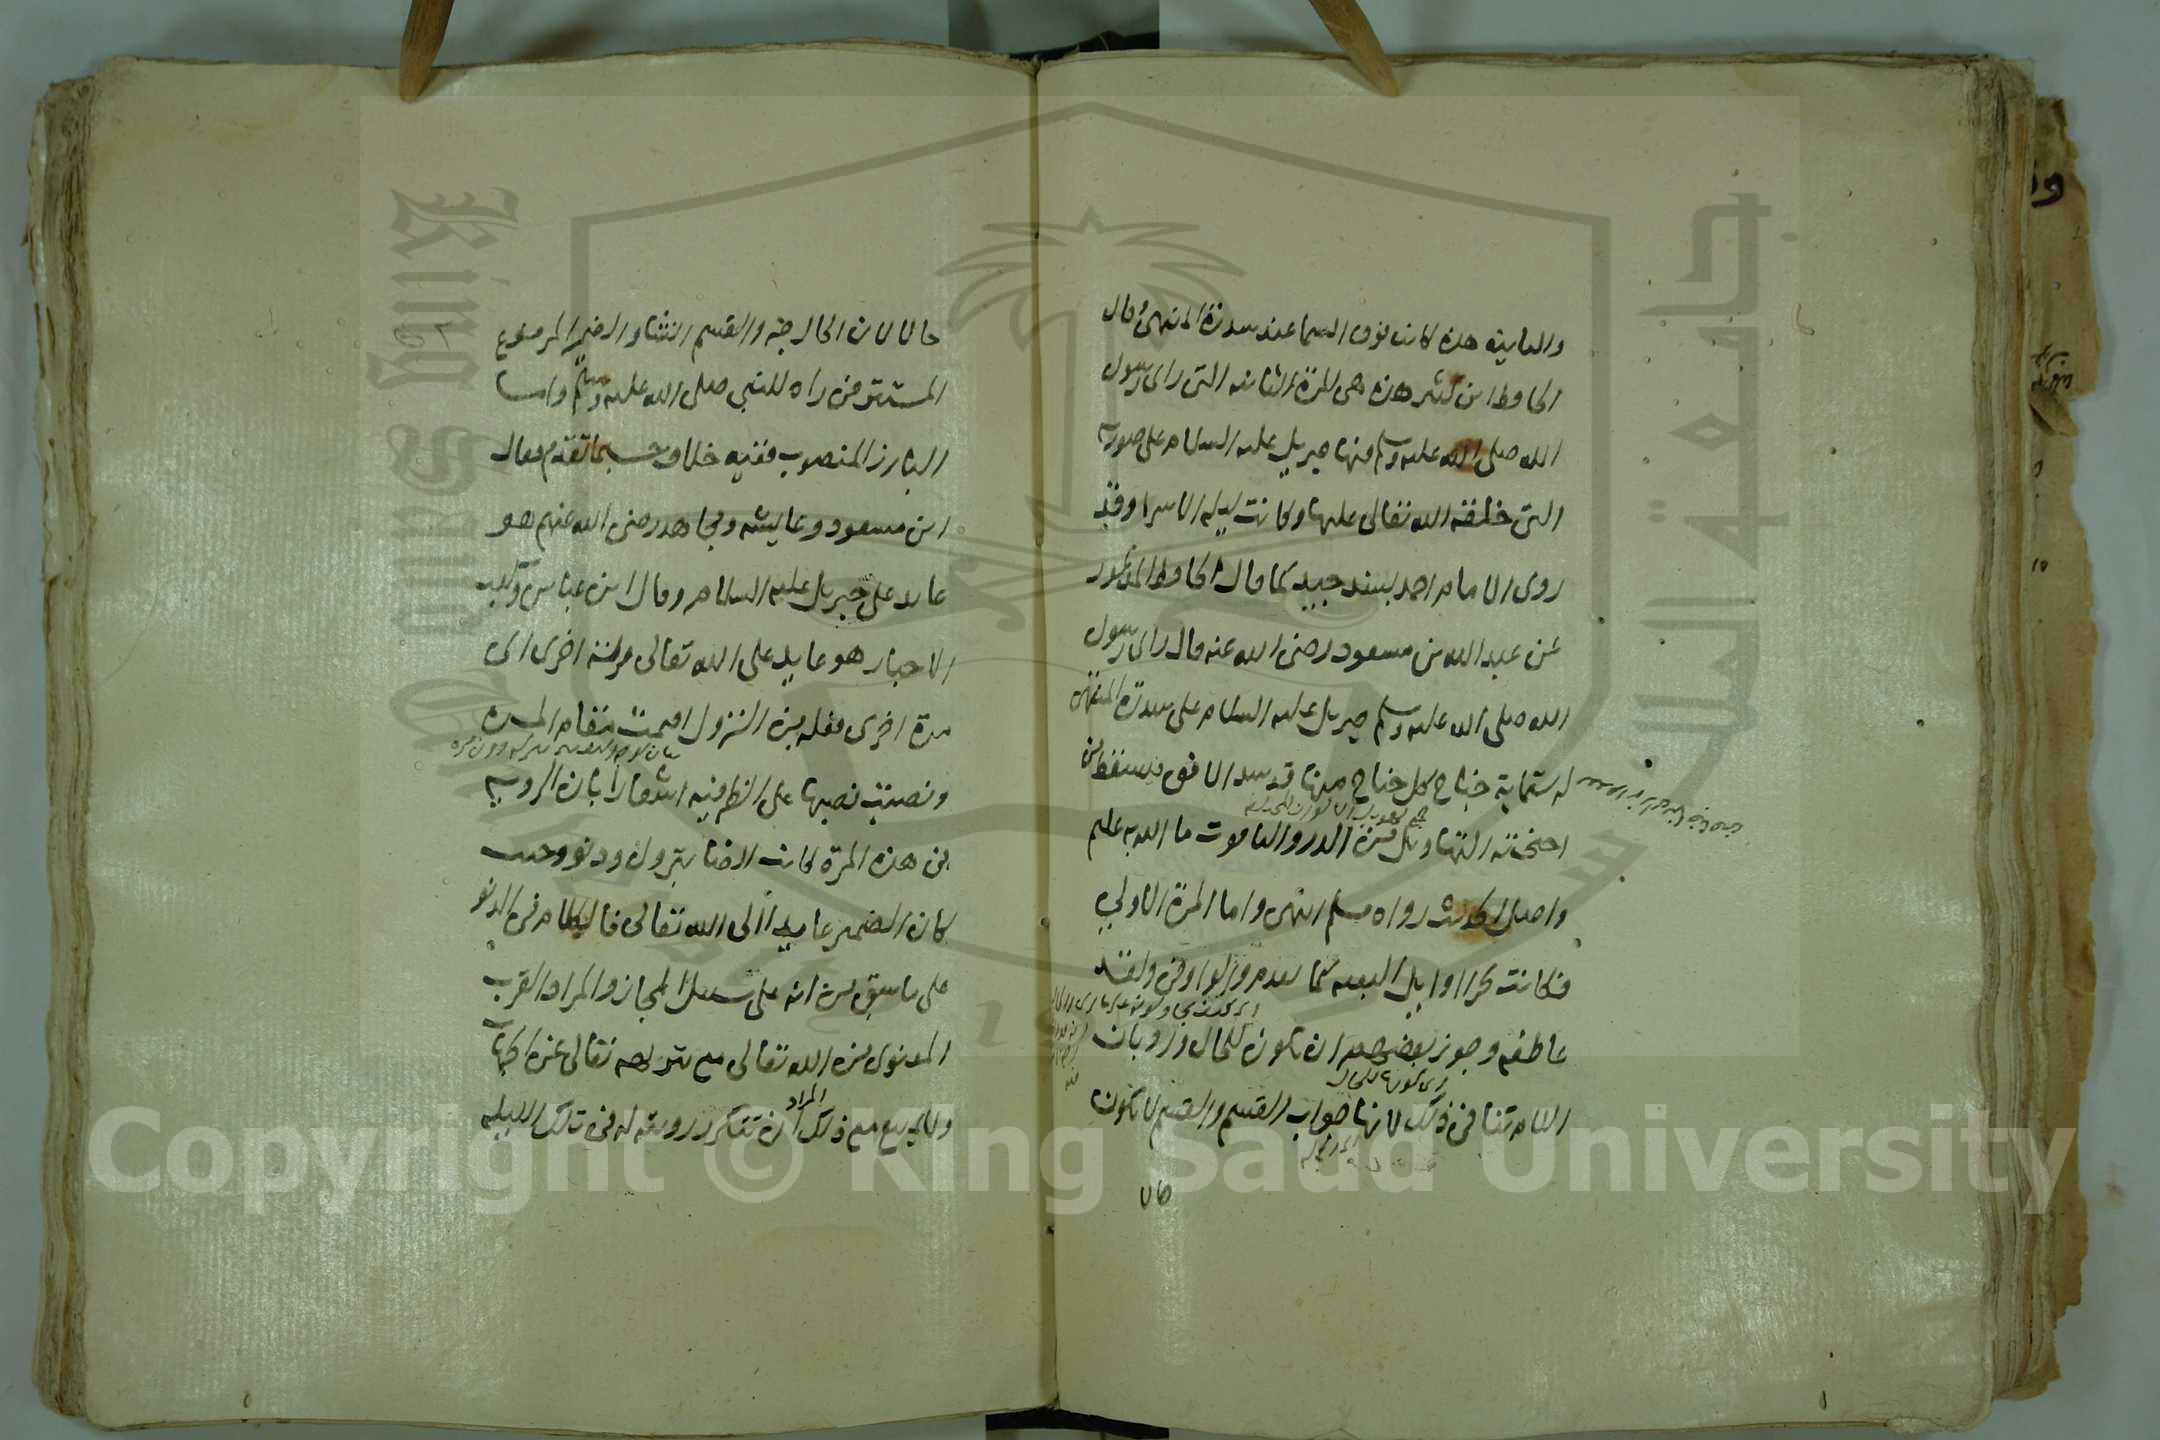 والثانية هذه كانت فوق السما عند سدرة المنتهى وقال
الحافظ ابن كثير هذه هي المرة الثانية التي راى رسول
الله صلى الله عليه وسلم فيها جبريل عليه السلام على صورته
التي خلقه الله تعالى عليها وكانت ليلة الاسرا وقد
روى الامام احمد بسند جيد كما قال الحافظ المذكور
عن عبد الله بن مسعود رضى الله عنه قال راى رسول
الله صلى الله عليه وسلم جبريل عليه السلام على سدرة المنتهى
له ستماية جناح كل جناح منها قد سد الافق يسقط من
اجنحته التهاويل من الدر والياقوت ما الله به عليم
واصل الحديث رواه مسلم انتهى واما المرة الاولى
فكانت بحرا اوايل البعثة كما تقدم والواو في ولقد
عاطفة وجوز بعضهم ان تكون للحال ورد بان
اللام تنافي ذلك لانها جواب القسم والقسم لا يكون
حالا
حالا لان الحال خبر والقسم انشا والضمير المرفوع
المستتر في راه للنبي صلى الله عليه وسلم واما
البارز المنصوب ففيه خلاف حسبما تقدم فقال
ابن مسعود وعايشه ومجاهد رضى الله عنهم هو
عايد على جبريل عليه السلام وقال ابن عباس وكعب
الاحبار هو عايد على الله تعالى ونزلة اخرى اى
مرة اخرى فعله من النزول اقيمت مقام المرة
ونصبت نصبها على الظرفية اشعارا بان الروية
في هذه المرة كانت ايضا بنزول ودنو وحيث
كان الضمير عايدا الى الله تعالى فالكلام في الدنو
على ما سبق من انه على سبيل المجاز والمراد القرب
المعنوى من الله تعالى مع تنزيهه تعالى عن الجهة
ولا يمنع مع ذلك المراد ان تتكرر رويته له في تلك الليلة
جامعة الملك سعود
King Saud University
1957
Copyright © King Saud University